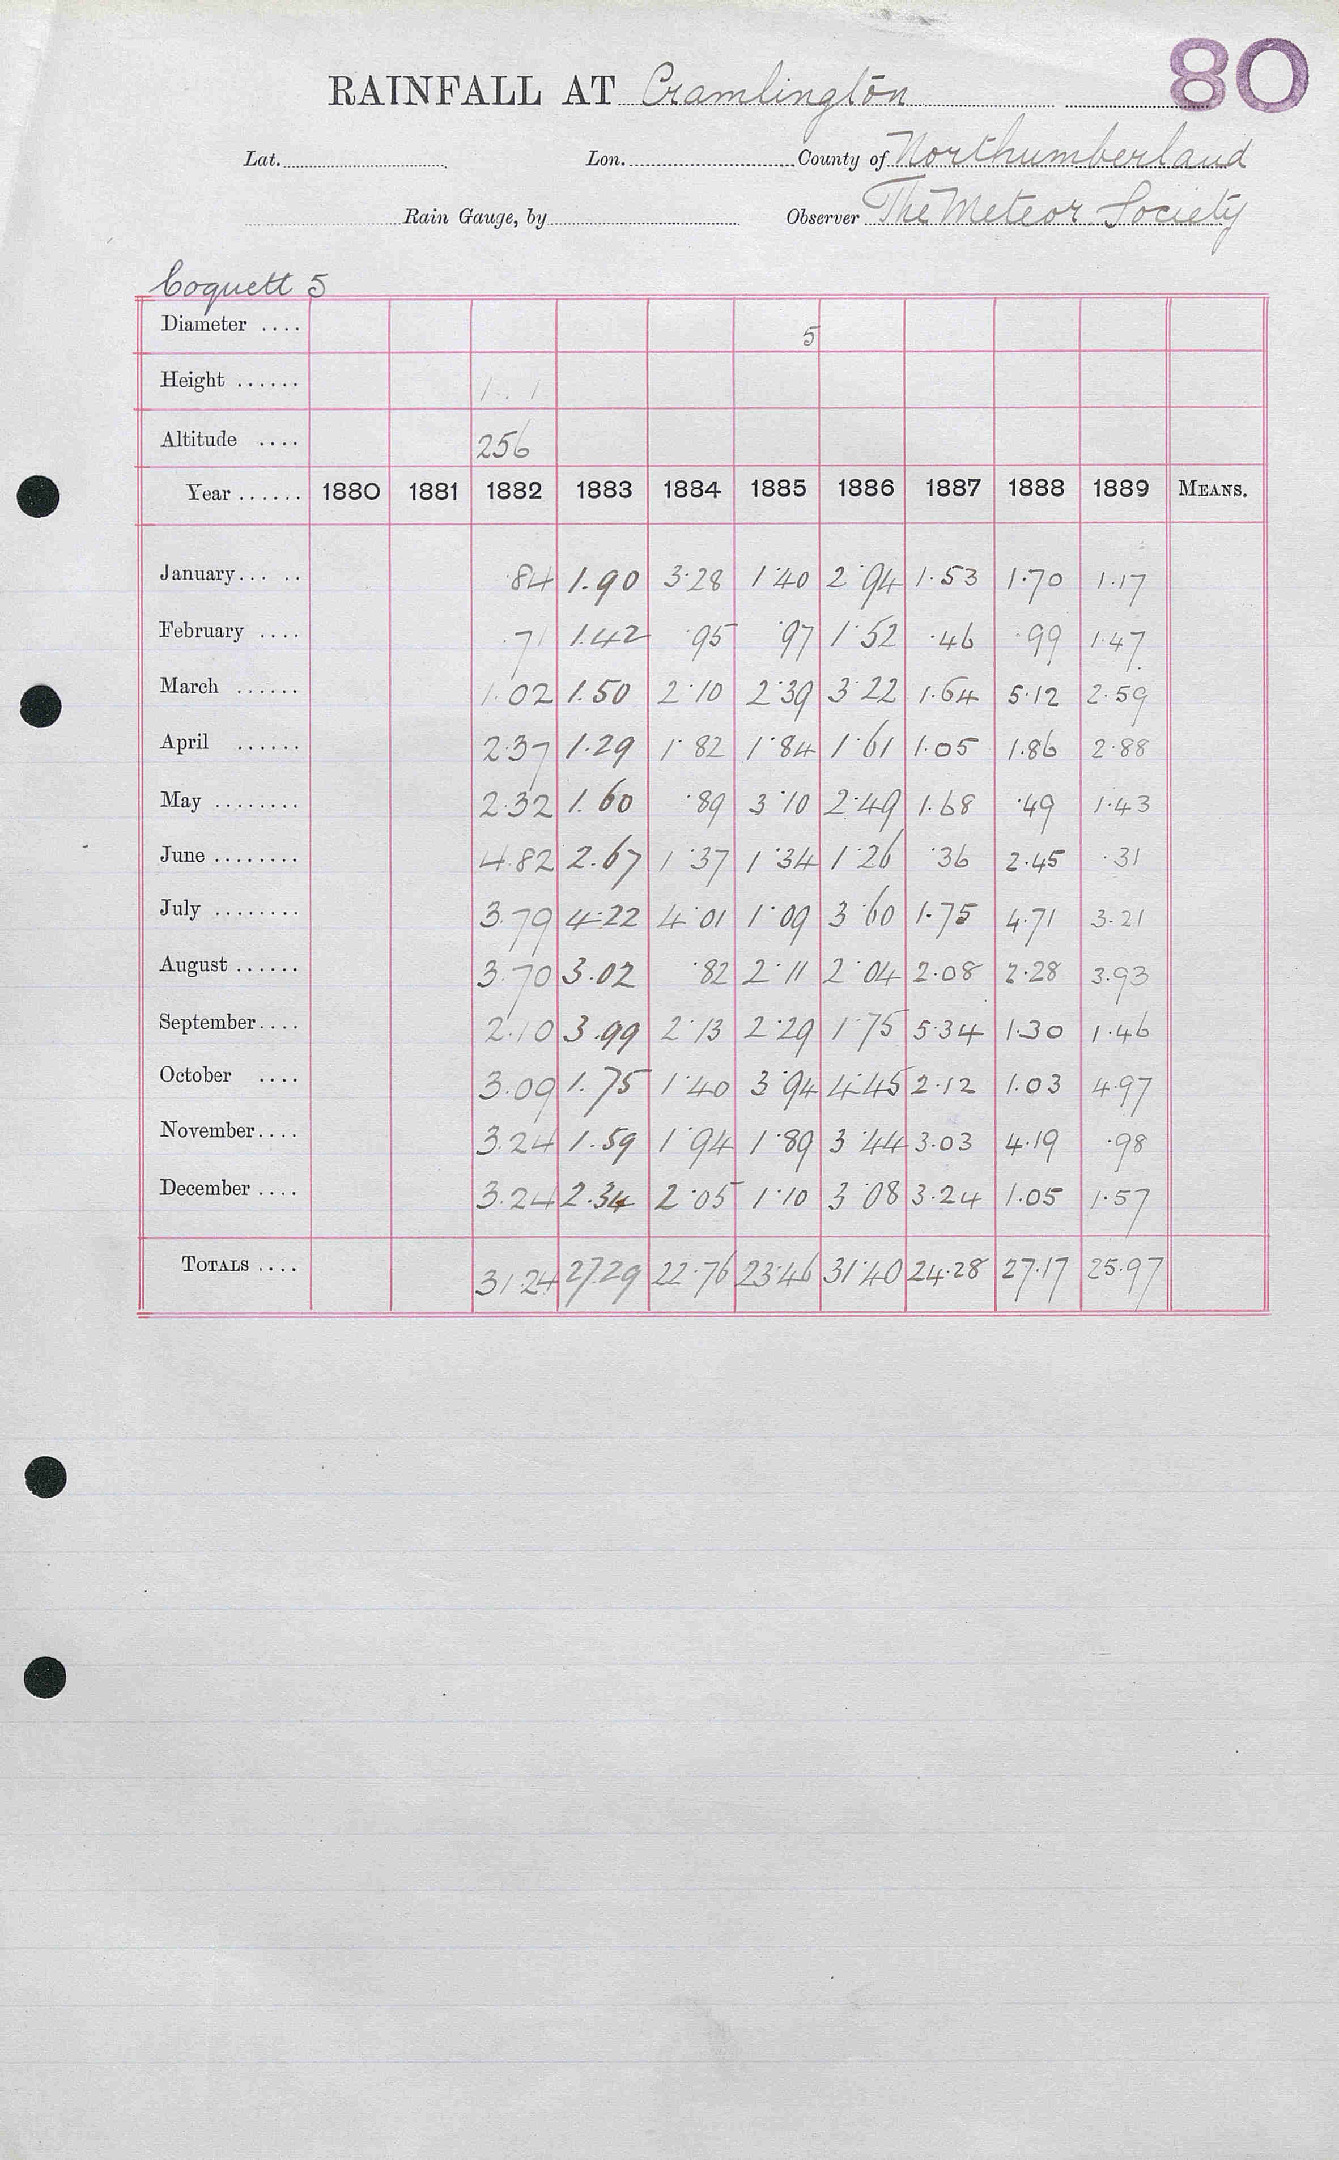 80
RAINFALL AT Cramlington
Lat. Lon. County of Northumberland
Rain Gauge, by Observer The Meteor. Society
Coquett 5
Diameter .... 5
Height ...... 1 . 1
Altitude .... 256
Year ...... 1880 1881 1882 1883 1884 1885 1886 1887 1888 1889 MEANS.
January... .. ·84 1.90 3·28 1·40 2·94 1·53 1·70 1·17
February .... ·71 1.42 ·95 ·97 1·52 ·46 ·99 1·47
March ...... 1.02 1.50 2·10 2·39 3·22 1·64 5·12 2·59
April ...... 2·37 1·29 1·82 1·84 1·61 1·05 1·86 2·88
May ........ 2·32 1.60 ·89 3·10 2·49 1·68 ·49 1·43
June ........ 4·82 2.67 1·37 1·34 1·26 ·36 2·45 ·31
July ........ 3.79 4·22 4·01 1·09 3·60 1·75 4·71 3·21
August ...... 3·70 3·02 ·82 2·11 2·04 2·08 2·28 3·93
September.... 2·10 3.99 2·13 2·29 1·75 5·34 1·30 1·46
October .... 3·09 1.75 1·40 3·94 4·45 2·12 1·03 4·97
November.... 3·24 1·59 1·94 1·89 3·44 3·03 4·19 ·98
December .... 3·24 2·34 2·05 1·10 3·08 3·24 1·05 1·57
TOTALS .... 31·24 27.29 22·76 23·46 31·40 24·28 27·17 25·97